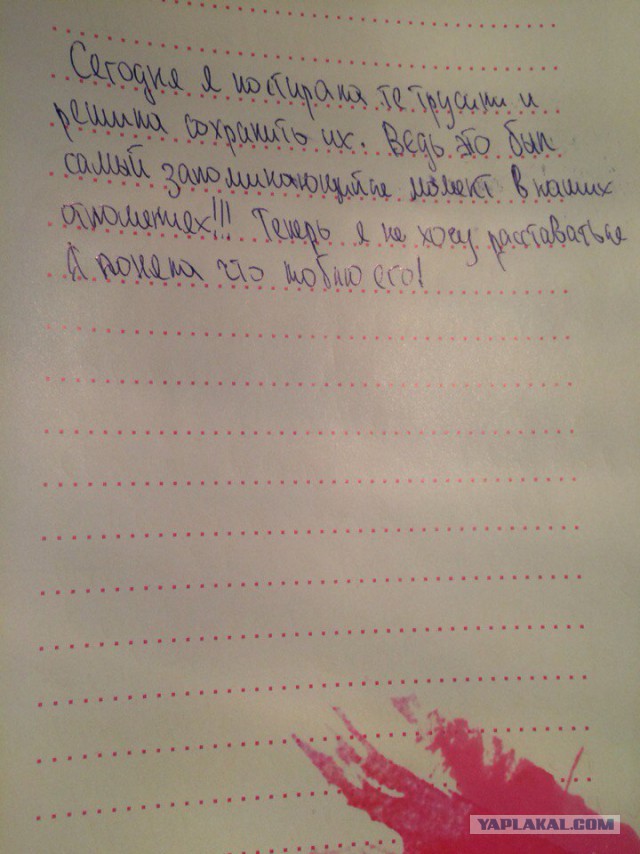 Сегодня я постирала те трусики и
решила сохранить их. Ведь это был
самый запоминающийся момент в наших
отношениях!!! Теперь я не хочу расставаться
Я поняла что люблю его!
YAPLAKAL.COM